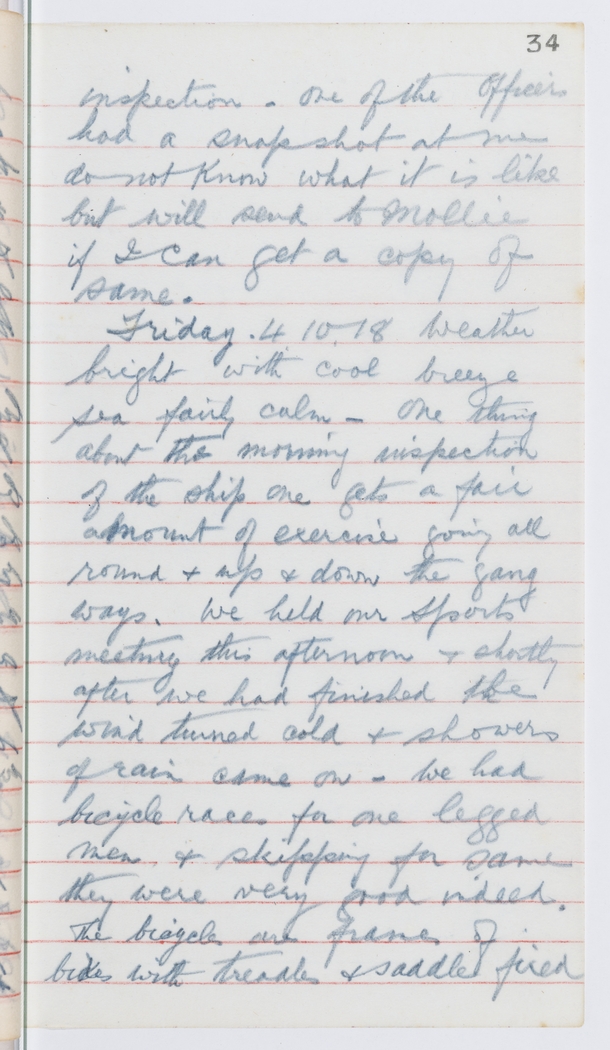 34
inspection. One of the Officers
had a snapshot at me
do not know what it is like
but will send to Mollie
if I can get a copy of
same.
Friday. 4 10 18 Weather
bright with cool breeze
sea fairly calm - One thing
about the morning inspection
of the ship one gets a fair
amount of exercise going all
round & up & down the gang
ways. We held our Sports
meeting this afternoon & shortly
after we had finished the
wind turned cold & showers
of rain came on - We had
bicycle races for one legged
men, & skipping for same
they were very good indeed.
The bicycles are frames of
bikes with treadles & saddles fixed